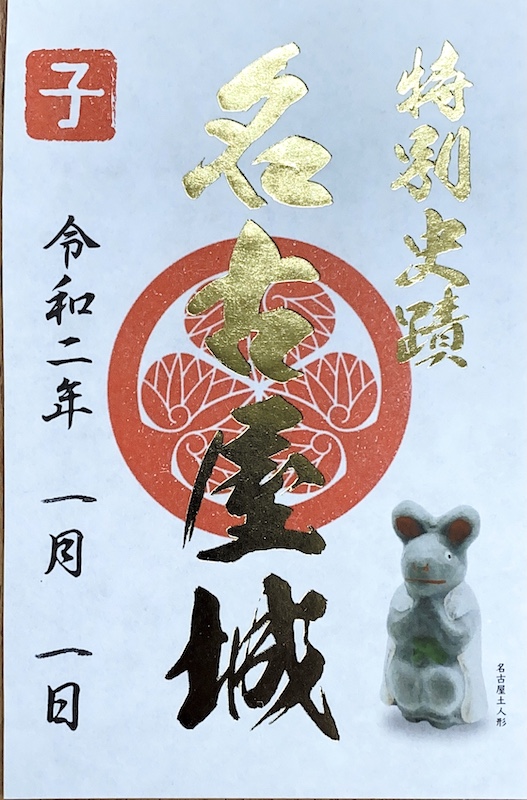 特別史蹟
名古屋城
子
令和二年 一月 一日
名古屋土人形